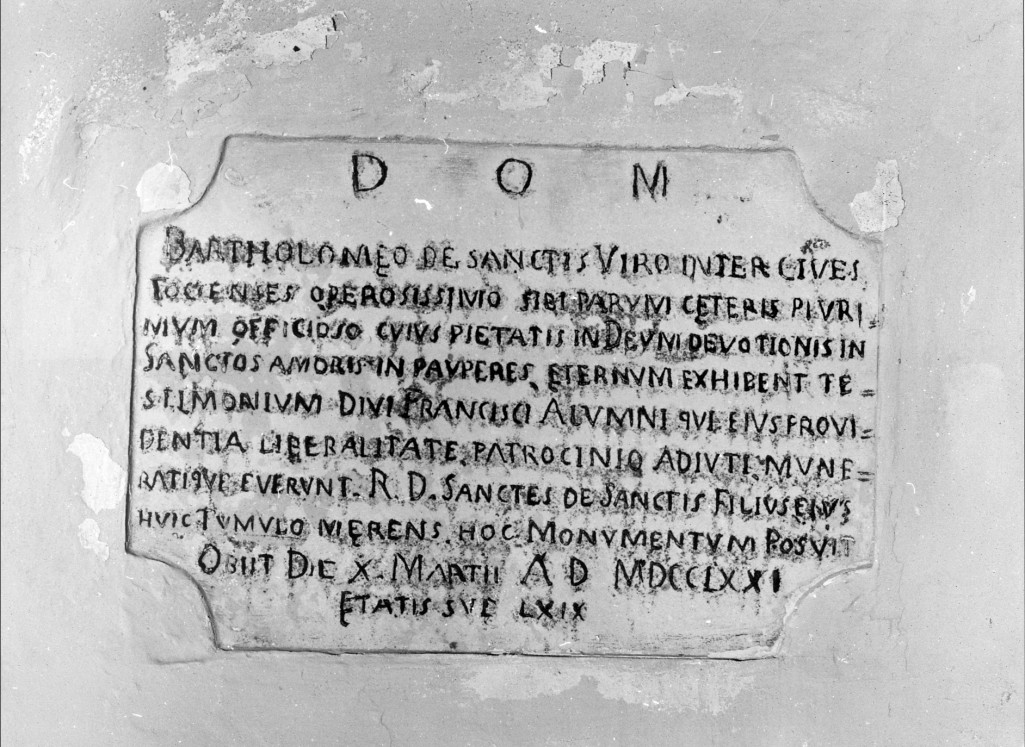 D O M
BARTHOLOMEO DE SANCTIS VIRO INTER CIVES
OPEROSISSIMO SIBI PARVM CETERIS PLVRI=
MVM OFFICIOSO CVIVS PIETATIS IN DEVM DEVOTIONIS IN
SANCTOS AMORIS IN PAVPERES ETERNVM EXHIBENT TE=
STIMONIVM DIVI FRANCISCI ALVMNI QVE EIVS PROVI=
DENTIA LIBERALITATE PATROCINIO ADIVTI MVNE=
RATIQVE FVERVNT. R. D. SANCTES DE SANCTIS FILIVS EIVS
HVIC TVMVLO MERENS HOC MONVMENTVM POSVIT
OBIIT DIE X. MARTII A D MDCCLXXI
ETATIS SVE LXIX